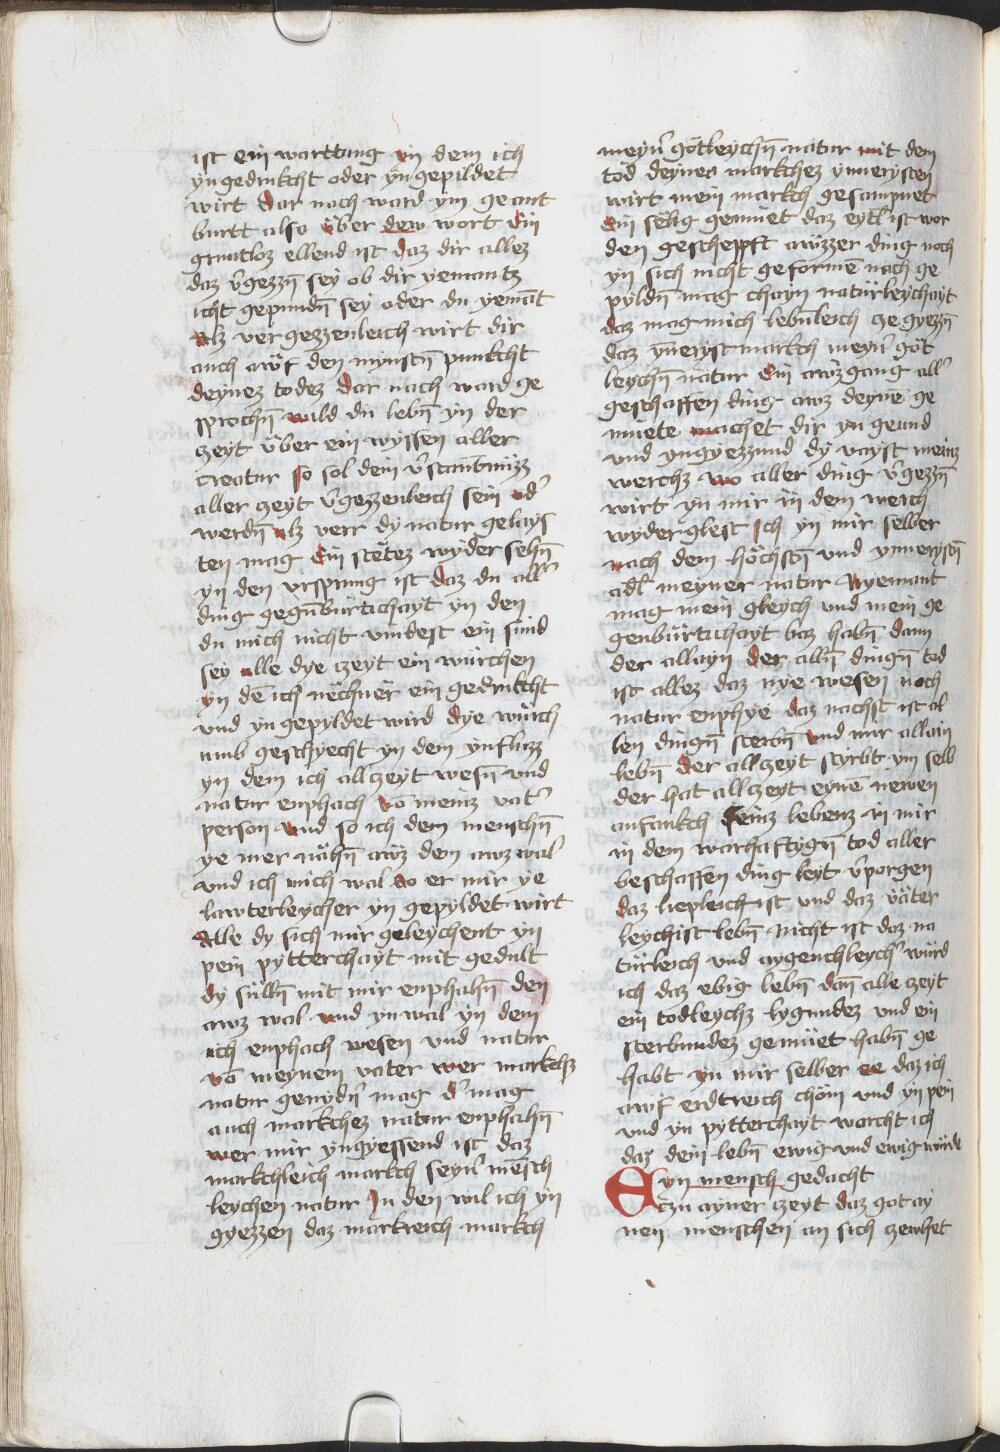 ist ein warttung yn dem ich
yn gedrukcht oder yn gepildet
wirt Dar nach ward ym geant
burtt also über dew wort Ein
gruntloz ellend ist daz dir allez
daz v̉gezzn̄ sey ob dir yemantz
icht gepundn̄ sey oder du yemāt
Alz vergezzenleich wirt dir
auch awf den mynstn̄ punkcht
deynez todez Dar nach ward ge
sprochn̄ wild du lebn̄ yn der
zeyt über ein wyssen aller
creatur so sol dem v̉stantnüzz
aller zeyt v̉gezzenleich sein od̉
werdn̄ alz verr dy natur gelays
ten mag Ein stêtez wyder sehn̄
yn den vrsprung ist daz du all̉
ding gegn̄bürtichayt yn den
du mich nicht vindest ein sünd
sey alle dye zeyt ein würchen
yn dē ich nêchner ein gedrukcht
vnd yn gepyldet wird Dye würch
nub geschyecht yn dem ynfluzz
yn dem ich allczeyt wesn̄ vnd
natur enphach vō meinz vat̉
person vnd so ich dem menschn̄
ye mer nähn̄ awz dem awzwal
vnd ich mich wal so er mir ye
lawterleycher yn gepyldet wirt
Alle dy sich mir geleychent yn
pein pytterchayt mit gedult
dy sülln̄ mit mir enphahn̄ den
awz wal vnd yn wal yn dem
ich enphach wesen vnd natur
vō meynem vater wer markchz
natur genydn̉ mag d̉ mag
auch markchez natur enphahn̄
wer mir yngyessend ist daz
markchleich markch seyn̉ mēsch
leychen natur In den wil ich yn
gyezzen daz markreich markch
meyn̉ götleychn̄ natur mit dem
tod deynes markchez ynnerysten
wirt mein markch gesampnet
Ein sêlig gemüet daz eytl ist wor
den gescheppft awzzer ding noch
yn sich nicht geformē nach ge
pyldn̄ mag chayn natürleychayt
daz mag mich lebn̄leich gegyezzn̄
daz yn̄eryst markch meyn̉ göt
leychn̄ natur Ein awzgang all̉
geschaffen ding awz deynē ge
müete machet dir yn geund
vnd yngyezzund dy vayst meinz
werchz wo aller ding v̉gezzn̄
wirt yn mir in dem werch
wyder glest Ich yn mir selber
nach dem höchstn̄ vnd ynnerystn̄
adl meyner natur Nyemant
mag mein gleych vnd mein ge
genbürtichayt baz habn̄ dann
der allayn der alln̄ dingn̄ tod
ist allez daz nye wesen noch
natur enphye daz nachst ist al
len dingn̄ sterbn̄ vnd mir allain
lebn̄ Der allczeyt styrbt ym selb
der hat allczeyt eynē newen
anfankch seinz lebenz in mir
in dem warhaftygn̄ tod aller
beschaffen ding leyt v̉porgen
daz liepleich ist vnd daz väter
leychist lebn̄ nicht ist daz na
türleich vnd aygenchleych̉ würd
ich daz ebig lebn̄ dan̄ alle zeyt
ein todleychz lygundez vnd ein
sterbundez gemüet habn̄ ge
habt yn mir selber ee daz ich
awf erdtreich chöm vnd yn pein
vnd yn pytterchayt warcht ich
daz dein lebn̄ ewig vnd ewig würde
Eyn mensch gedacht
Czu ayner zeyt daz got ay
nen menschen an sich zewhet